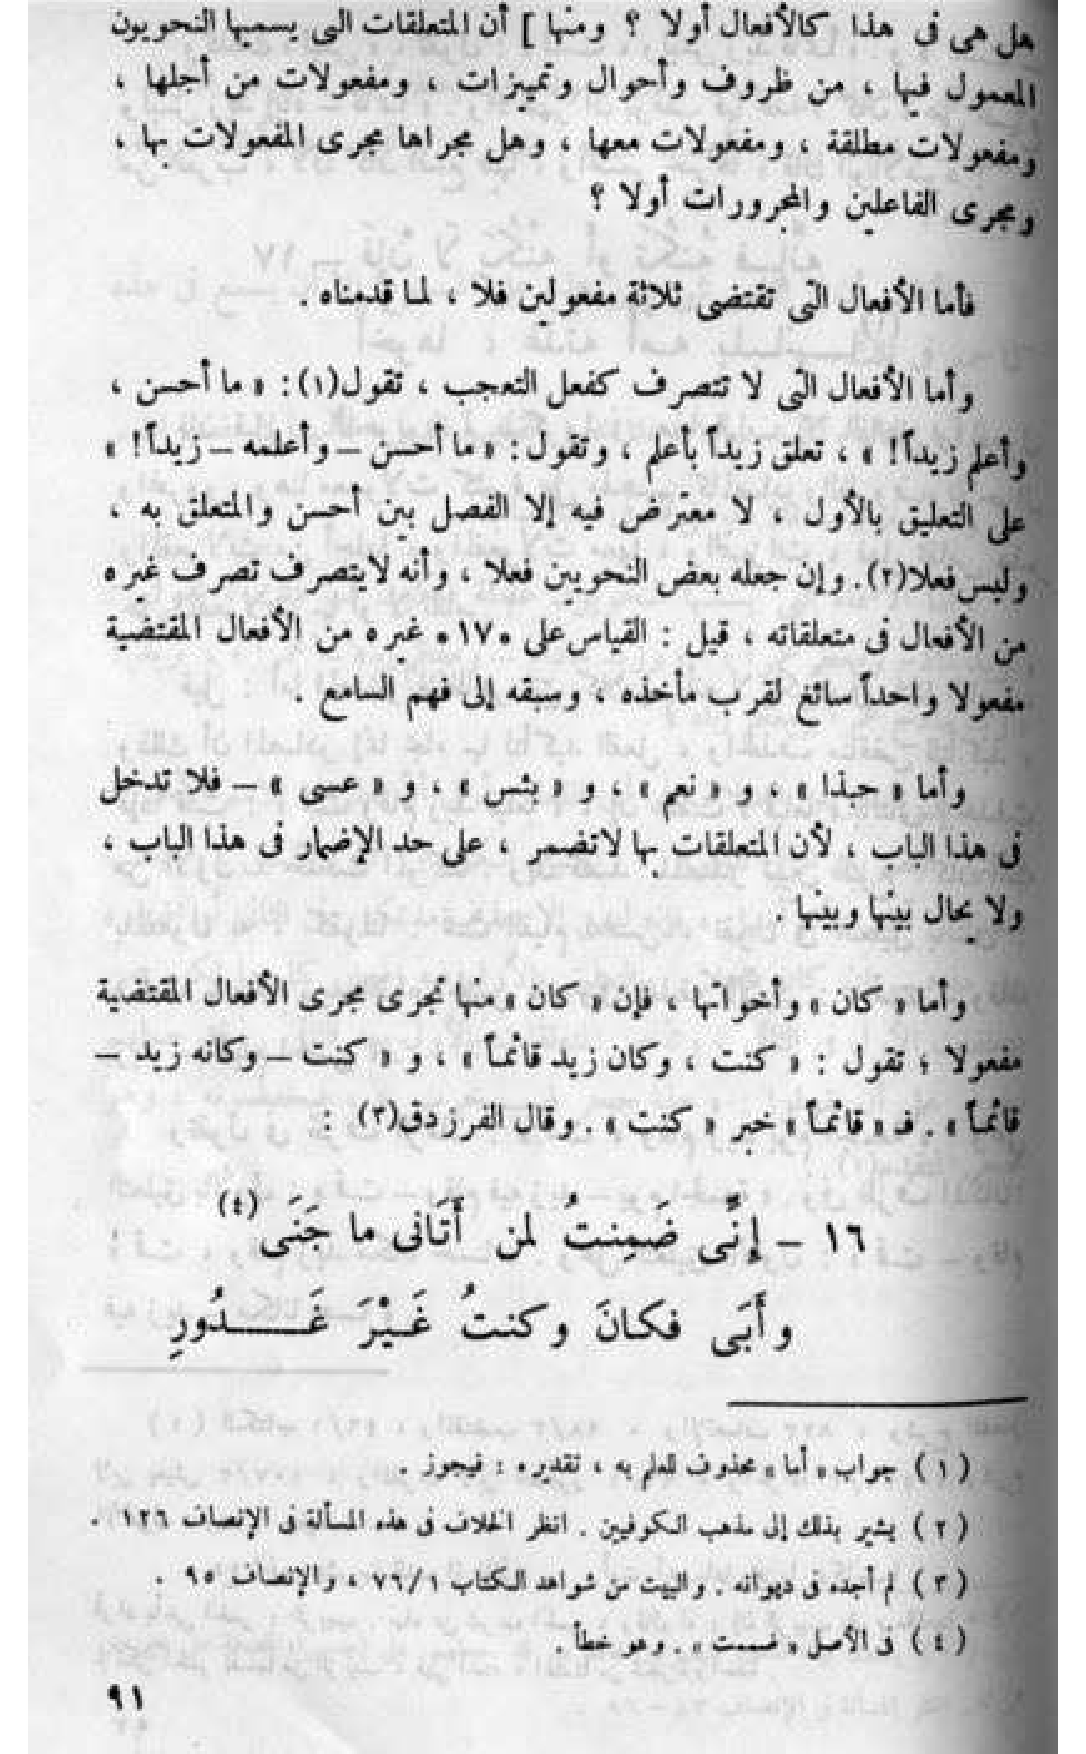 هل هى فى هذا كالأفعال أولا ؟ ومنها ] أن المتعلقات التى يسميها النحويون
المعمول فيها ، من ظروف وأحوال وتمييزات ، ومفعولات من أجلها ،
ومفعولات مطلقة ، ومفعولات معها ، وهل مجراها مجرى المفعولات بها ،
ومجرى الفاعلين والمجرورات أولا ؟
فأما الأفعال التى تقتضى ثلاثة مفعولين فلا ، لما قدمناه .
وأما الأفعال التى لا تتصرف كفعل التعجب ، تقول(١): « ما أحسن ،
وأعلم زيداً! » ، تعلق زيداً بأعلم ، وتقول: « ما أحسن – وأعلمه – زيداً! »
على التعليق بالأول ، لا معترض فيه إلا الفصل بين أحسن والمتعلق به ،
وليس فعلا(٢). وإن جعله بعض النحويين فعلا ، وأنه لايتصرف تصرف غيره
من الأفعال فى متعلقاته ، قيل : القياس على *١٧* غيره من الأفعال المقتضية
مفعولا واحداً سائغ لقرب مأخذه ، وسبقه إلى فهم السامع .
وأما « حبذا » ، و « نعم » ، و « بئس » ، و « عسى » – فلا تدخل
فى هذا الباب ، لأن المتعلقات بها لاتضمر ، على حد الإضمار فى هذا الباب ،
ولا يحال بينها وبينها .
وأما « كان » وأخواتها ، فإن « كان » منها تجرى مجرى الأفعال المقتضية
مفعولا ؛ تقول : « كنت ، وكان زيد قائماً » ، و « كنت – وكانه زيد –
قائماً » . فـ « قائماً » خبر « كنت » . وقال الفرزدق(٣) :
١٦ – إنِّى ضَمِنتُ لمن أَتَانى ما جَنَى (٤)
وأَبَى فكَانَ وكنتُ غَيْرَ غَـــدُورِ
( ١ ) جواب « أما » محذوف للعلم به ، تقديره : فيجوز .
( ٢ ) يشير بذلك إلى مذهب الكوفيين . انظر الخلاف فى هذه المسألة فى الإنصاف ١٢٦ .
( ٣ ) لم أجده فى ديوانه . والبيت من شواهد الكتاب ٧٦/١ ، والإنصاف ٩٥ .
( ٤ ) فى الأصل « ضممت » . وهو خطأ .
٩١